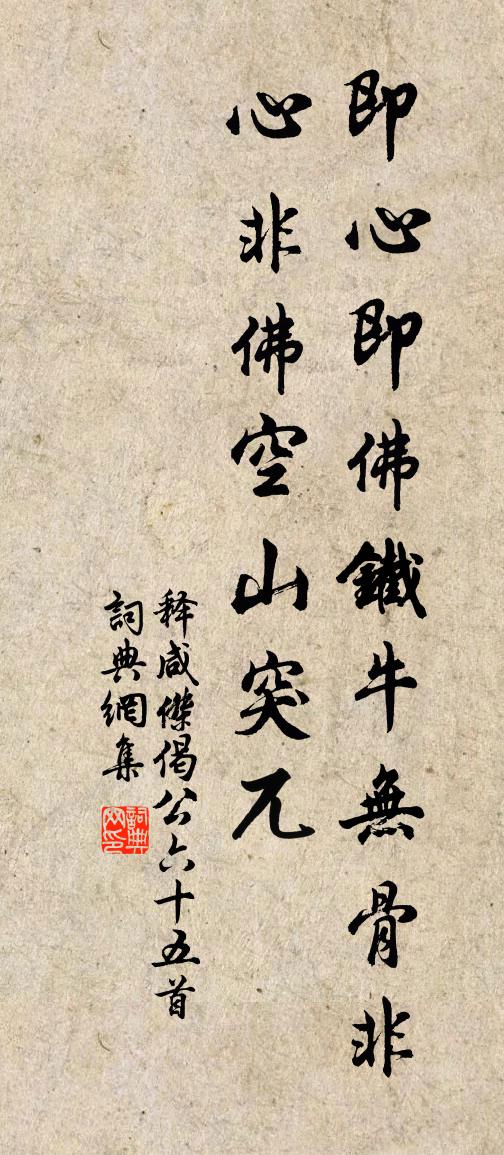 即心即佛鐵牛無骨非
心非佛空山突兀
释咸傑偈公六十五首
詞典網集
詞典
网印